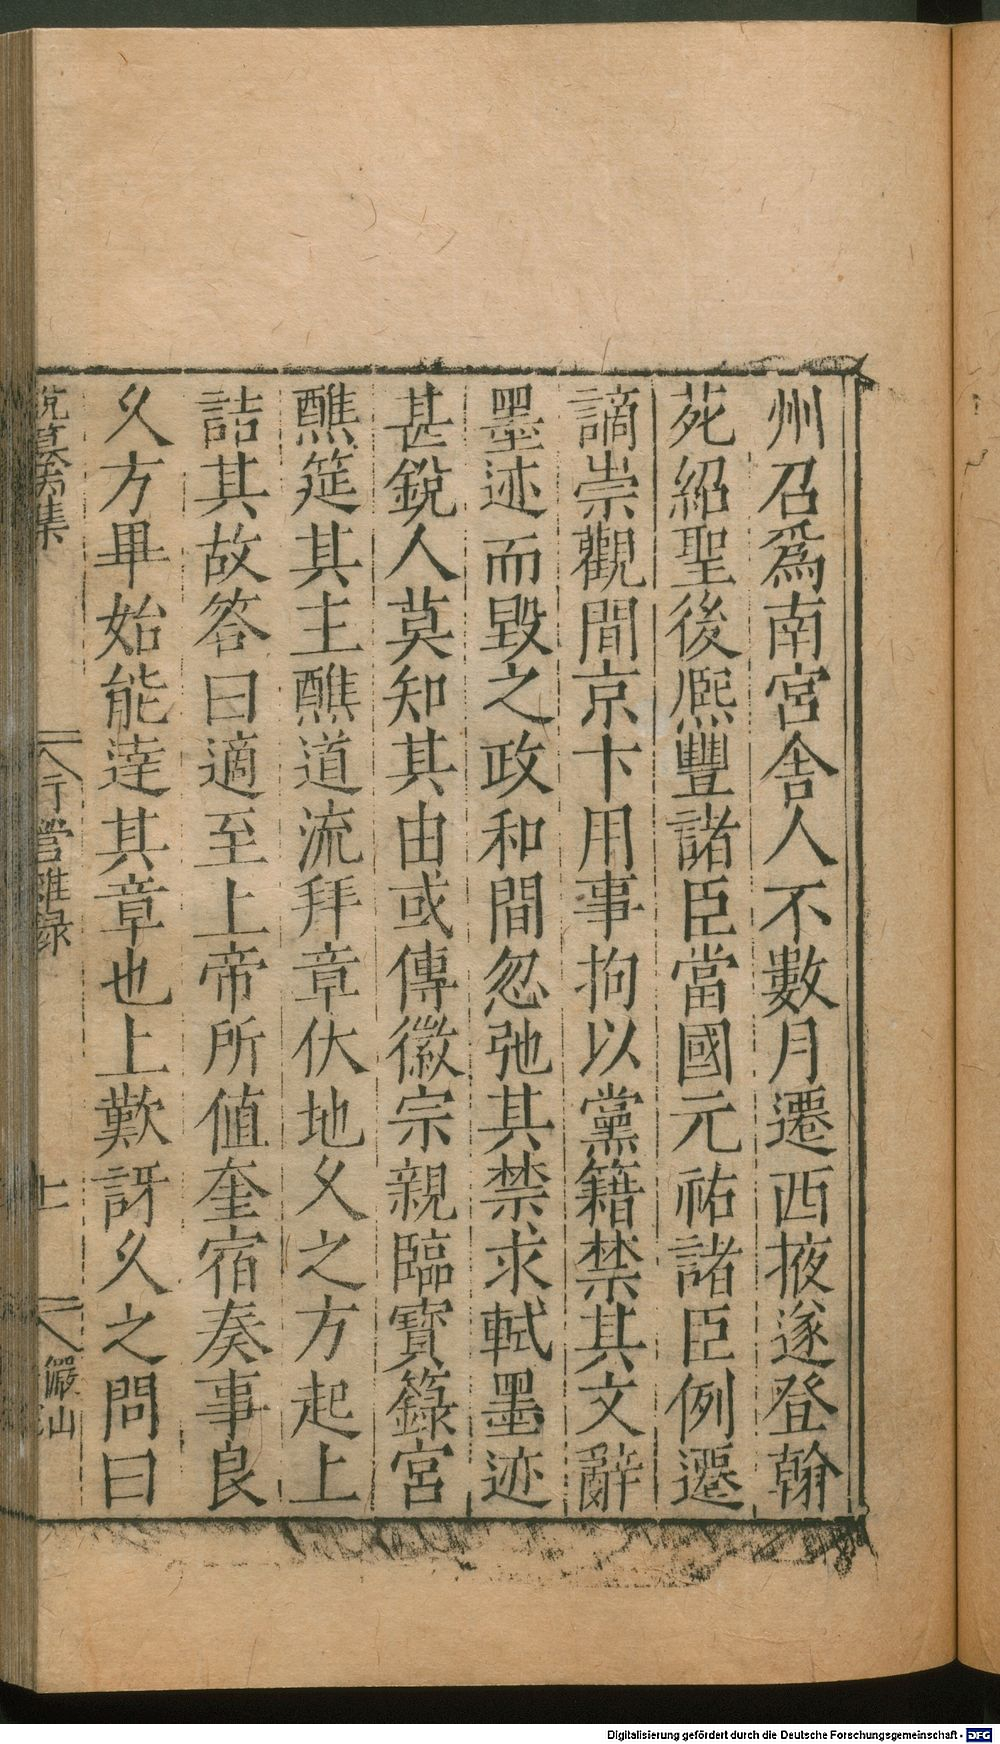 州召爲南宮舍人不數月遷西掖遂登翰
苑紹聖後熈豐諸臣當國元祐諸臣例遷
謫崇觀間京卞用事拘以黨籍禁其文辭
墨迹而毀之政和間忽弛其禁求軾墨迹
甚銳人莫知其由或傳徽宗親臨寶籙宮
醮筵其主醮道流拜章伏地久之方起上
詰其故答曰適至上帝所値奎宿奏事良
久方畢始能達其章也上歎訝久之問曰
集
行營雜録
儼山
Digitalisierung gefördert durch die Deutsche Forschungsgemeinschaft - DFG